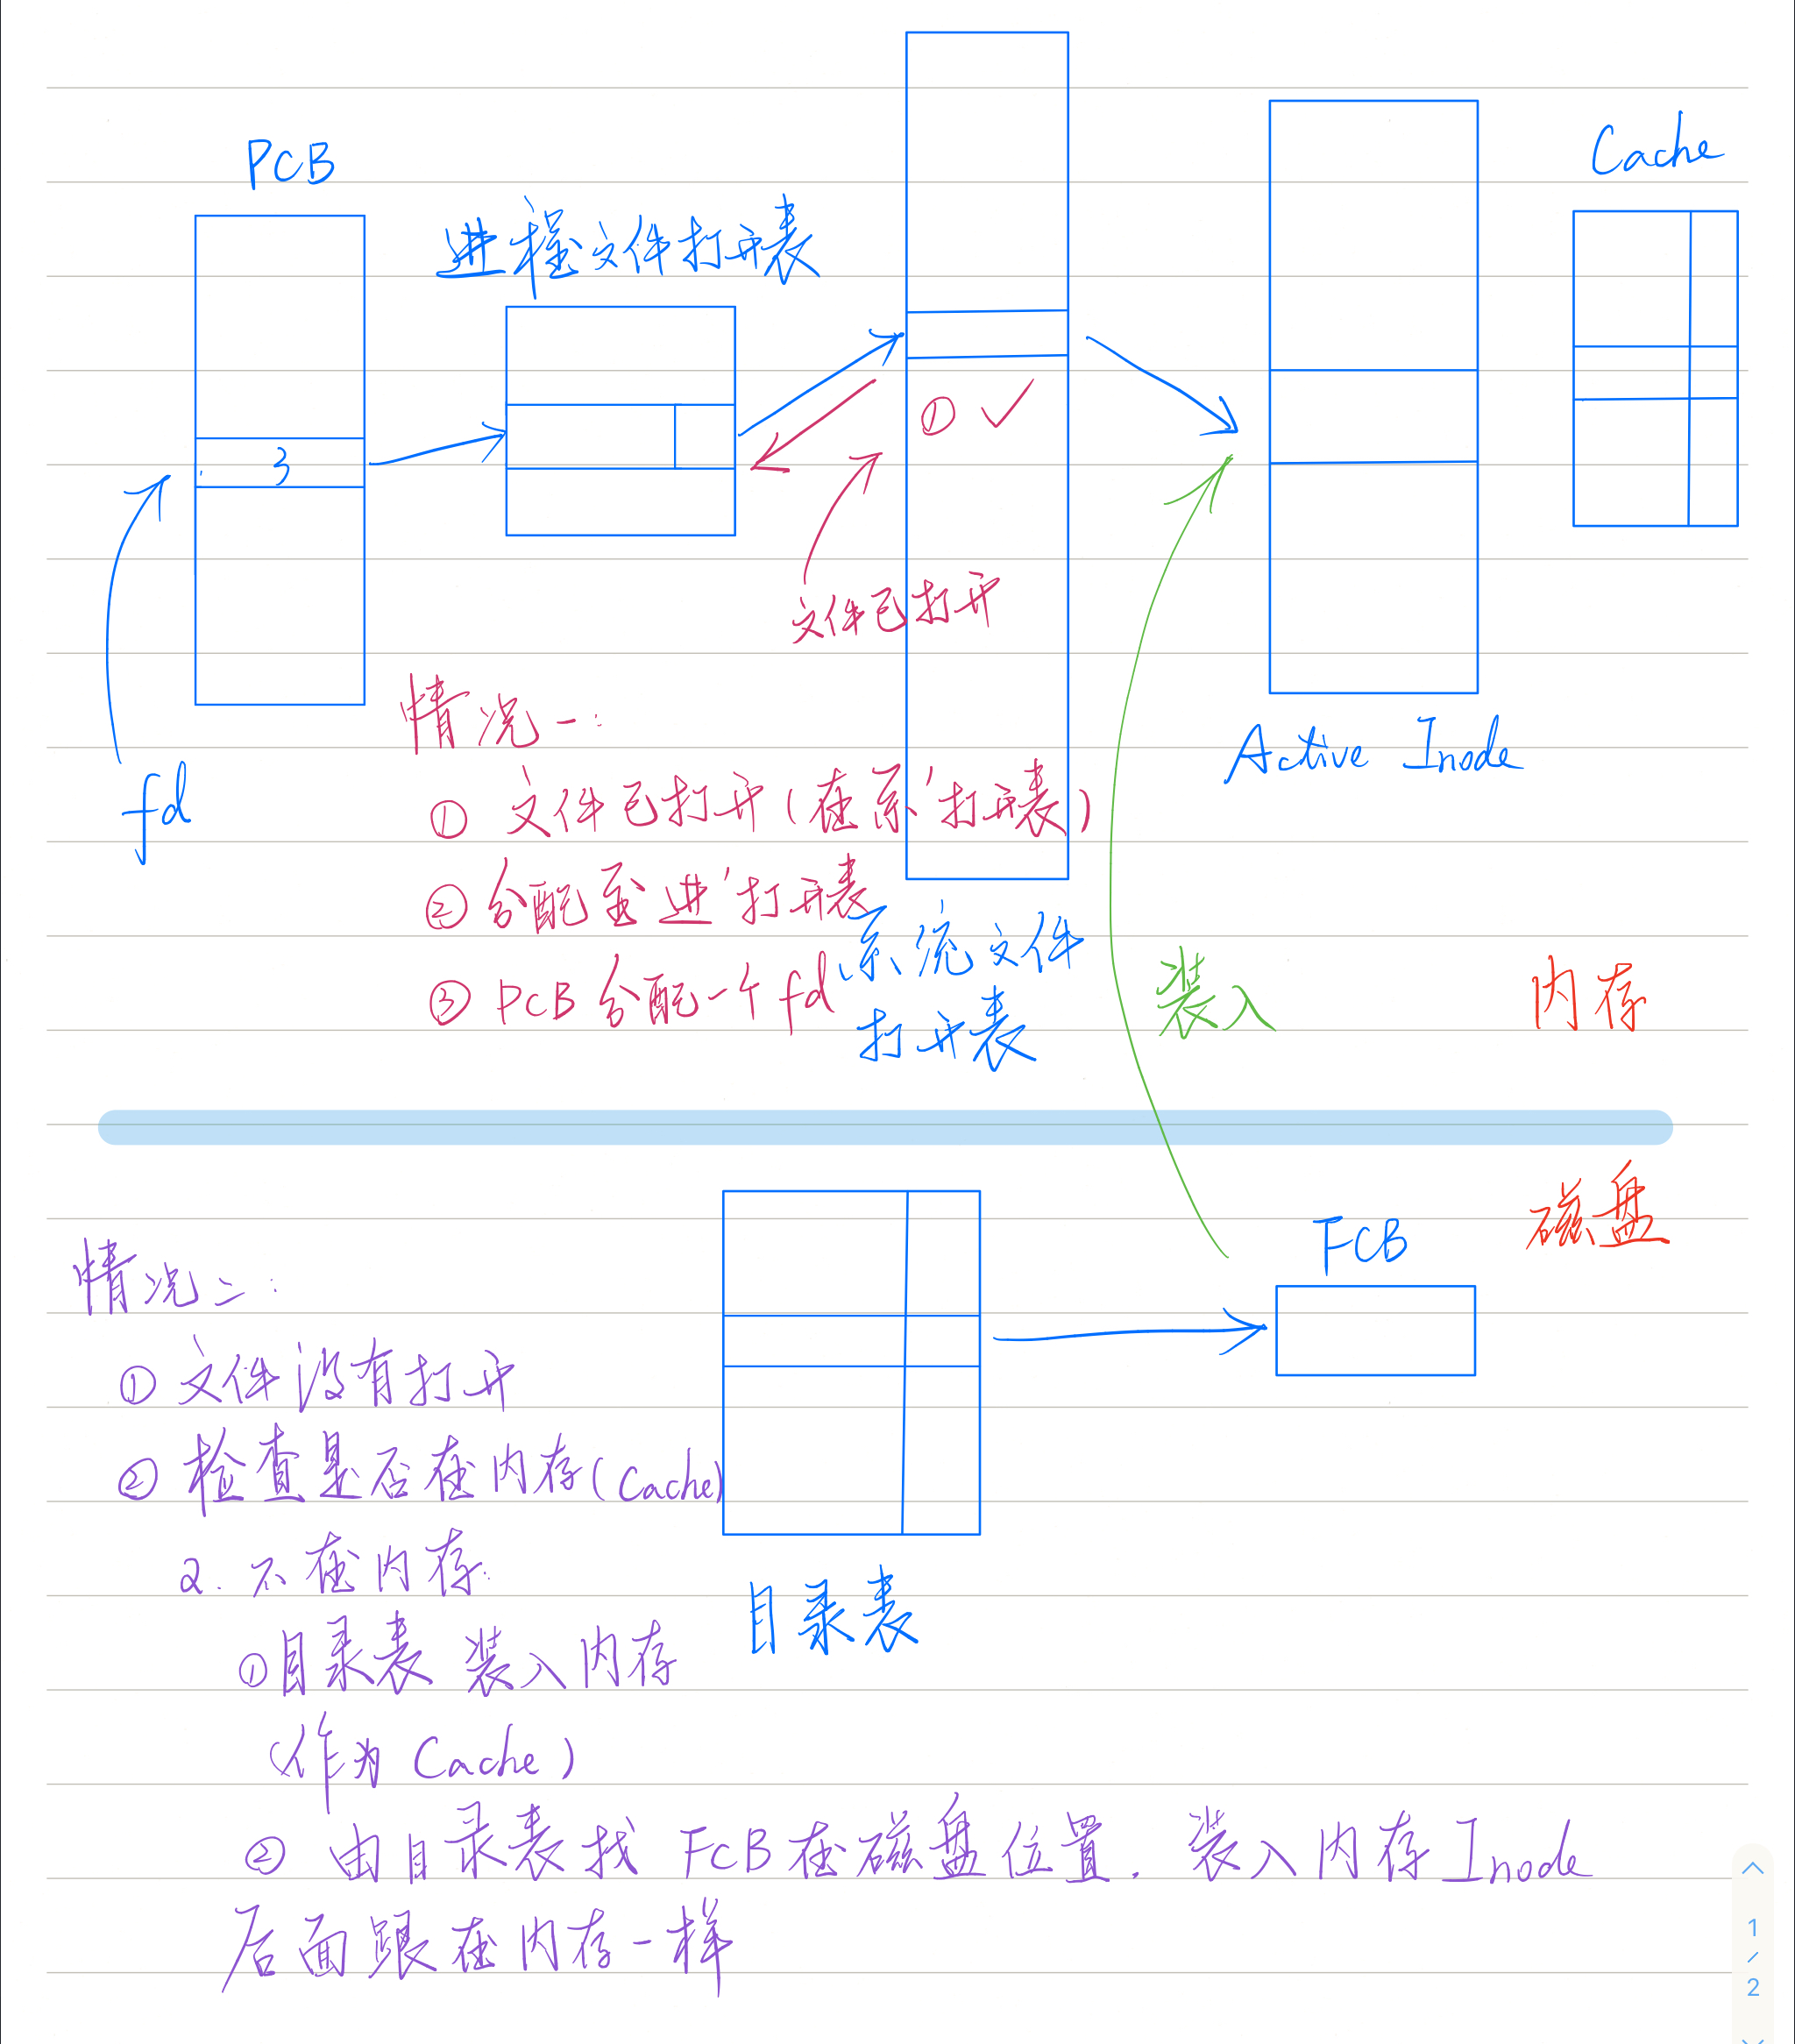 PCB
Cache
进程文件打开表
3
① ✓
文件已打开
fd
Active Inode
情况一:
① 文件已打开(在系'打开表)
② 分配至进'打开表
③ PCB 分配一个 fd
系统文件
打开表
装入
内存
磁盘
FCB
情况二:
① 文件没有打开
② 检查是否在内存(Cache)
2. 不在内存:
① 目录表 装入内存
(作为 Cache)
② 由目录表找 FCB 在磁盘位置, 装入内存 Inode
后面跟在内存一样
目录表
1
/
2